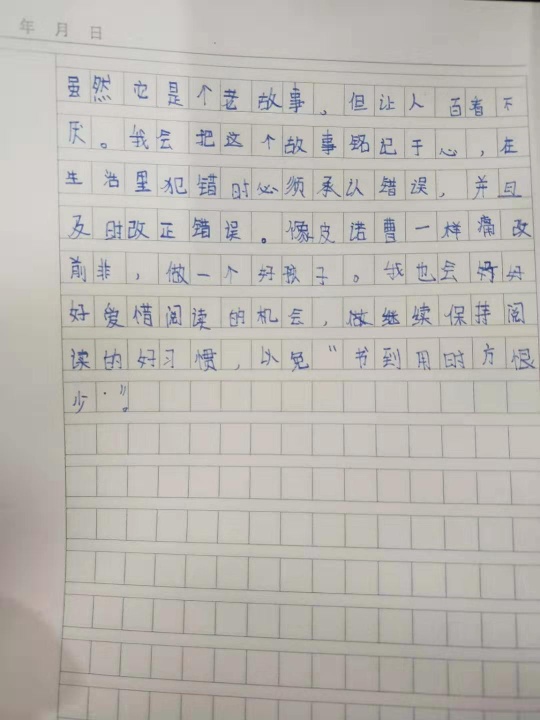 年 月 日
虽然它是个老故事，但让人百看不
厌。我会把这个故事铭记于心，在
生活里犯错时必须承认错误，并且
及时改正错误。像皮诺曹一样痛改
前非，做一个好孩子。我也会好好
好爱惜阅读的机会，做继续保持阅
读的好习惯，以免“书到用时方恨
少.”。